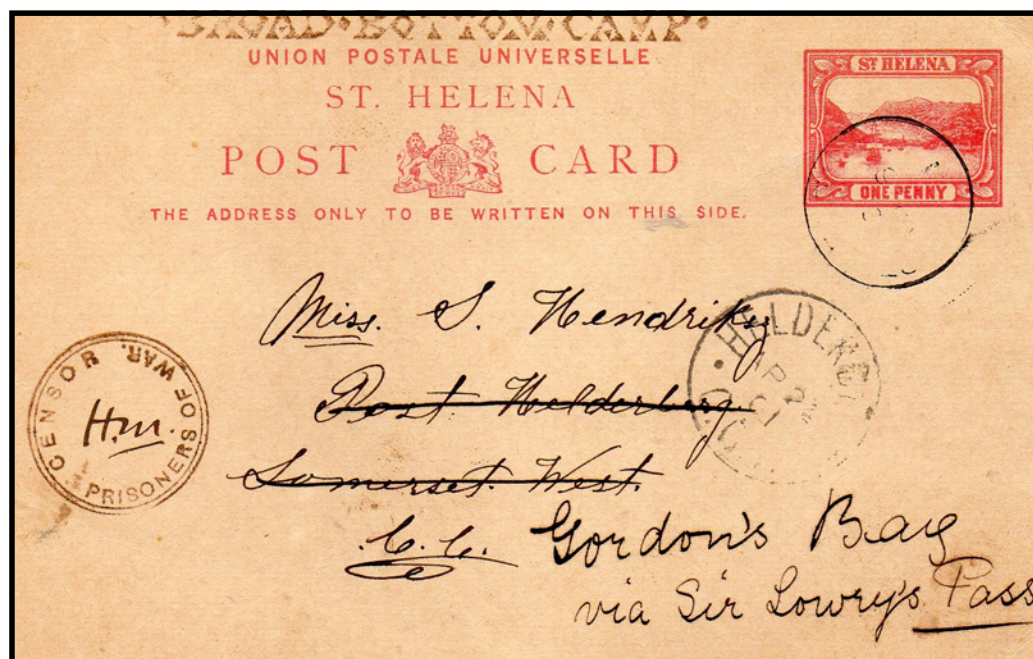 BROAD·BOTTOM·CAMP·
UNION POSTALE UNIVERSELLE
ST. HELENA
POST CARD
THE ADDRESS ONLY TO BE WRITTEN ON THIS SIDE.
ST HELENA
ONE PENNY
Miss. S. Hendriky
Post Helderberg.
Somerset. West.
C.C. Gordon's Bay
via Sir Lowry's Pass
CENSOR
PRISONERS OF WAR.
H.M.
AP